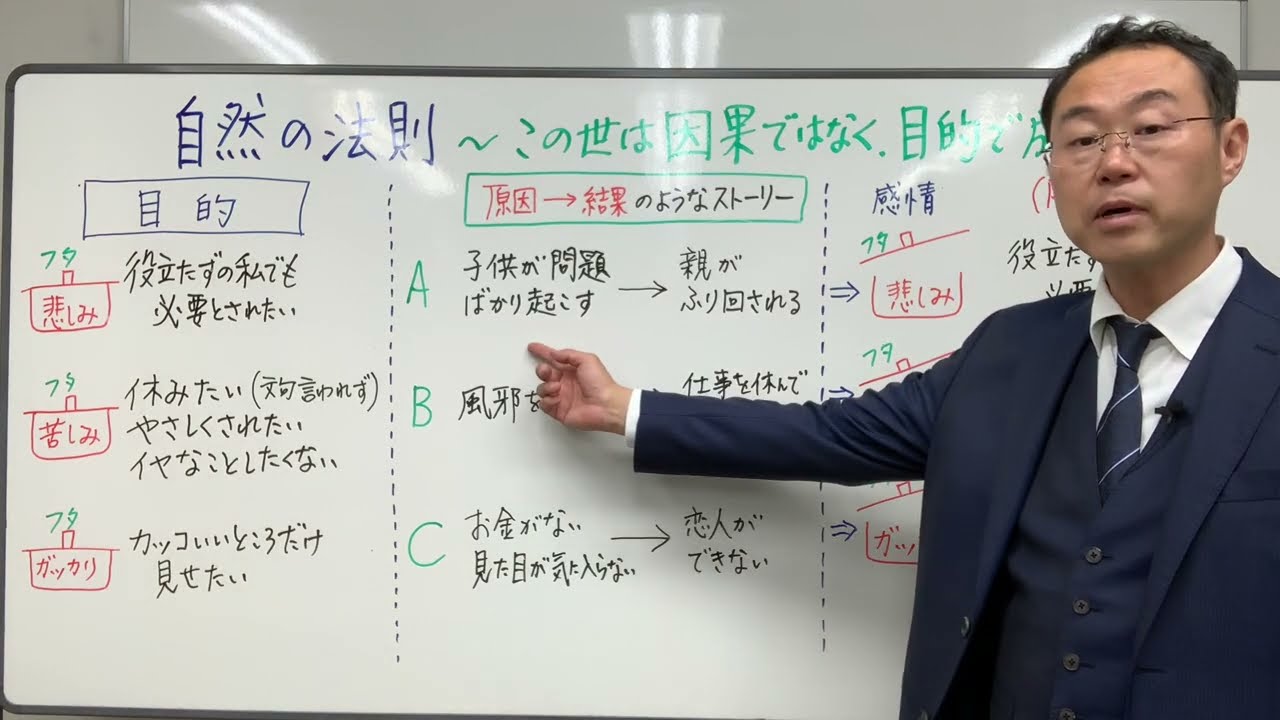 自然の法則 ～この世は因果ではなく、目的で
目的
原因→結果のようなストーリー
感情
フタ
悲しみ
役立たずの私でも
必要とされたい
A
子供が問題
ばかり起こす
→
親が
ふり回される
⇒
フタ
悲しみ
役立たず
必要
フタ
苦しみ
休みたい(文句言われず)
やさしくされたい
イヤなことしたくない
B
風邪を
仕事を休んで
⇒
フタ
フタ
ガッカリ
カッコいいところだけ
見せたい
C
お金がない
見た目が気に入らない
→
恋人が
できない
⇒
ガッ